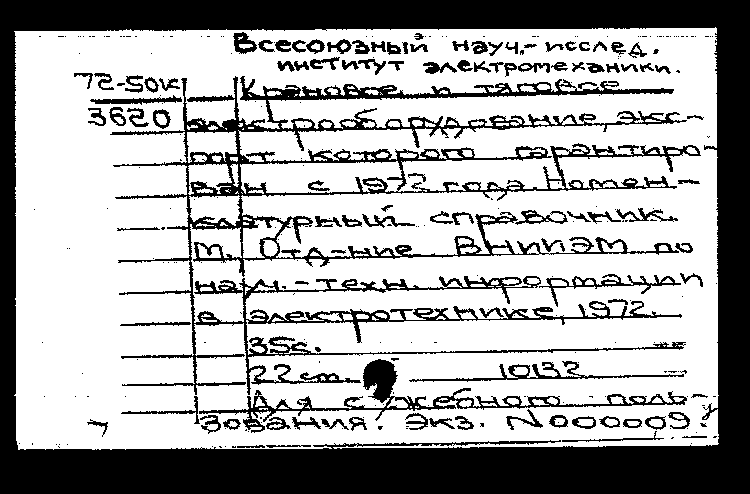 Всесоюзный науч.-исслед.
институт электромеханики.
72-50к Крановое и тяговое
3620 электрооборудование, экс-
порт которого гарантиро-
ван с 1972 года. Номен-
клатурный справочник.
М., Отд-ние ВНИИЭМ по
науч.-техн. информации
в электротехнике, 1972.
35с.
22 см. 10132
Для служебного поль-
зования. Экз. N000009.